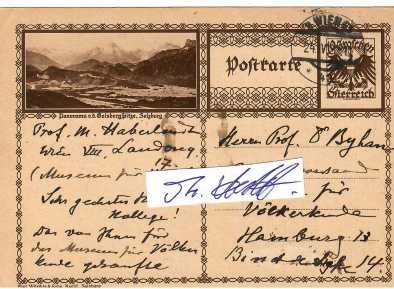 WIEN
24.VI
10 Groschen
Österreich
Postkarte
Panorama v.d. Gaisbergspitze, Salzburg
Prof. M. Haberlandt
Wien VIII, Laudong
17
(Museum für
Sehr geehrter
Kollege!
Das von Ihnen für
das Museum für Völker
kunde gekaufte
Herrn Prof Dr Byhan
für
Völkerkunde
Hamburg 13
14